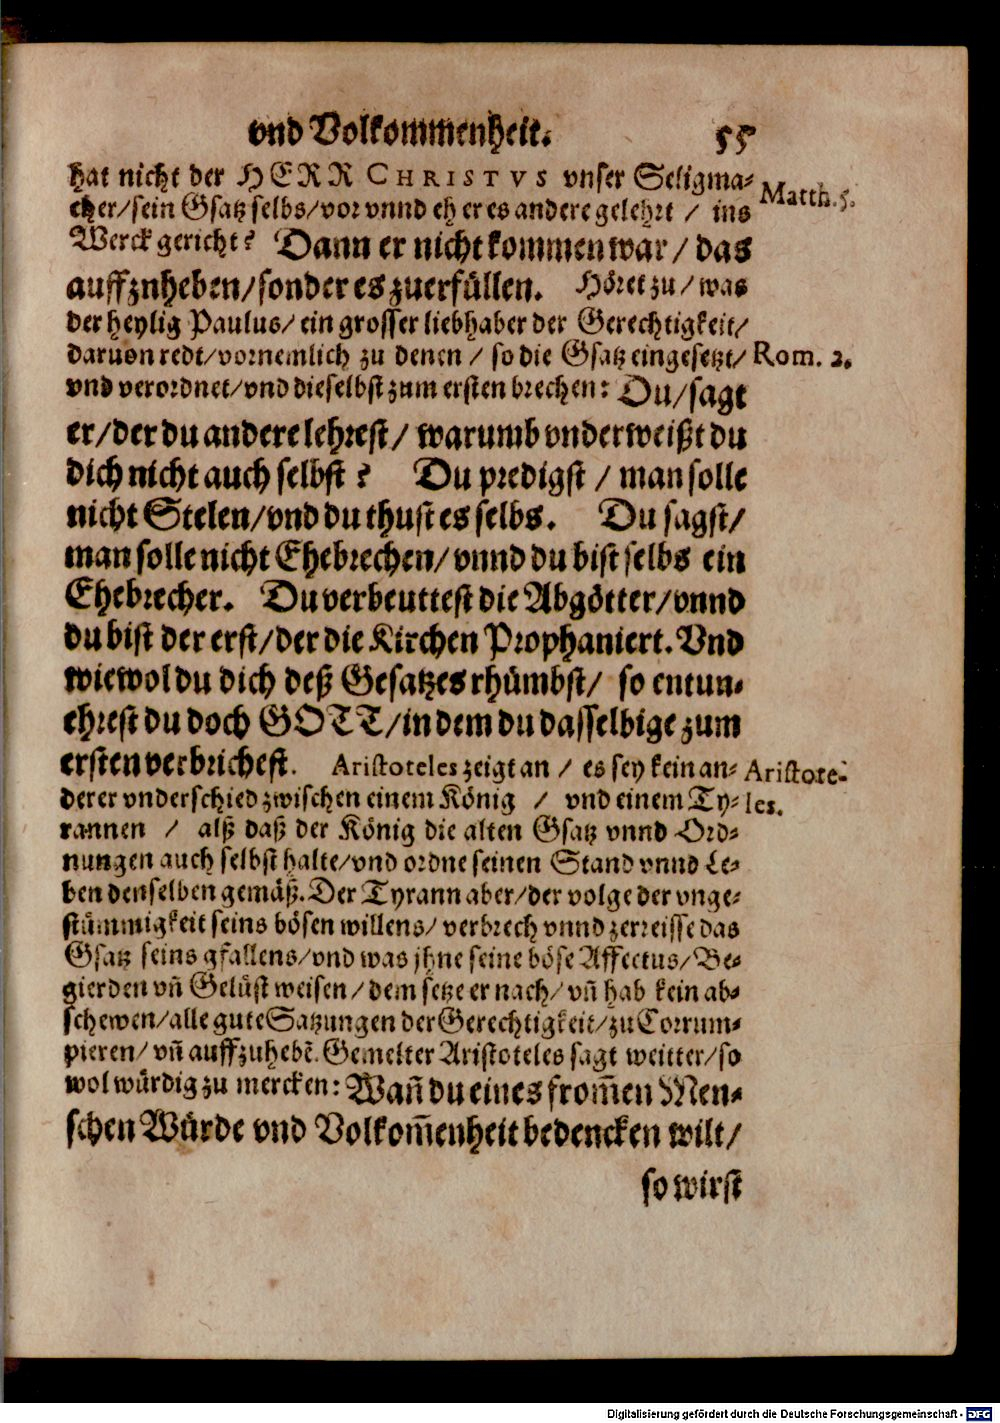 vnd Volkommenheit. 55
hat nicht der HERR CHRISTVS vnser Seligma-
cher/sein Gsatz selbs/vor vnnd eh er es andere gelehrt / ins
Matth. 5.
Werck gericht? Dann er nicht kommen war / das
auffznheben/sonder es zuerfüllen. Höret zu / was
der heylig Paulus/ ein grosser liebhaber der Gerechtigkeit/
daruon redt/vornemlich zu denen / so die Gsatz eingesetzt/
Rom. 2.
vnd verordnet/vnd dieselbst zum ersten brechen: Du/sagt
er/der du andere lehrest/ warumb vnderweißt du
dich nicht auch selbst? Du predigst / man solle
nicht Stelen/vnd du thust es selbs. Du sagst/
man solle nicht Ehebrechen/vnnd du bist selbs ein
Ehebrecher. Du verbeuttest die Abgötter/vnnd
du bist der erst/der die Kirchen Prophaniert. Vnd
wiewol du dich deß Gesatzes rhümbst/ so entun-
ehrest du doch GOTT/in dem du dasselbige zum
ersten verbrichest. Aristoteles zeigt an / es sey kein an-
Aristote-
derer vnderschied zwischen einem König / vnd einem Ty-
les.
rannen / alß daß der König die alten Gsatz vnnd Ord-
nungen auch selbst halte/vnd ordne seinen Stand vnnd Le-
ben denselben gemäß. Der Tyrann aber/der volge der vnge-
stümmigkeit seins bösen willens/ verbrech vnnd zerreisse das
Gsatz seins gfallens/vnd was jhne seine böse Affectus/Be-
gierden vñ Gelüst weisen / dem setze er nach/ vñ hab kein ab-
schewen/alle gute Satzungen der Gerechtigkeit/zu Corrum-
pieren/ vñ auffzuhebẽ. Gemelter Aristoteles sagt weitter/so
wol würdig zu mercken: Wañ du eines from̃en Men-
schen Würde vnd Volkom̃enheit bedencken wilt/
so wirst
Digitalisierung gefördert durch die Deutsche Forschungsgemeinschaft - DFG